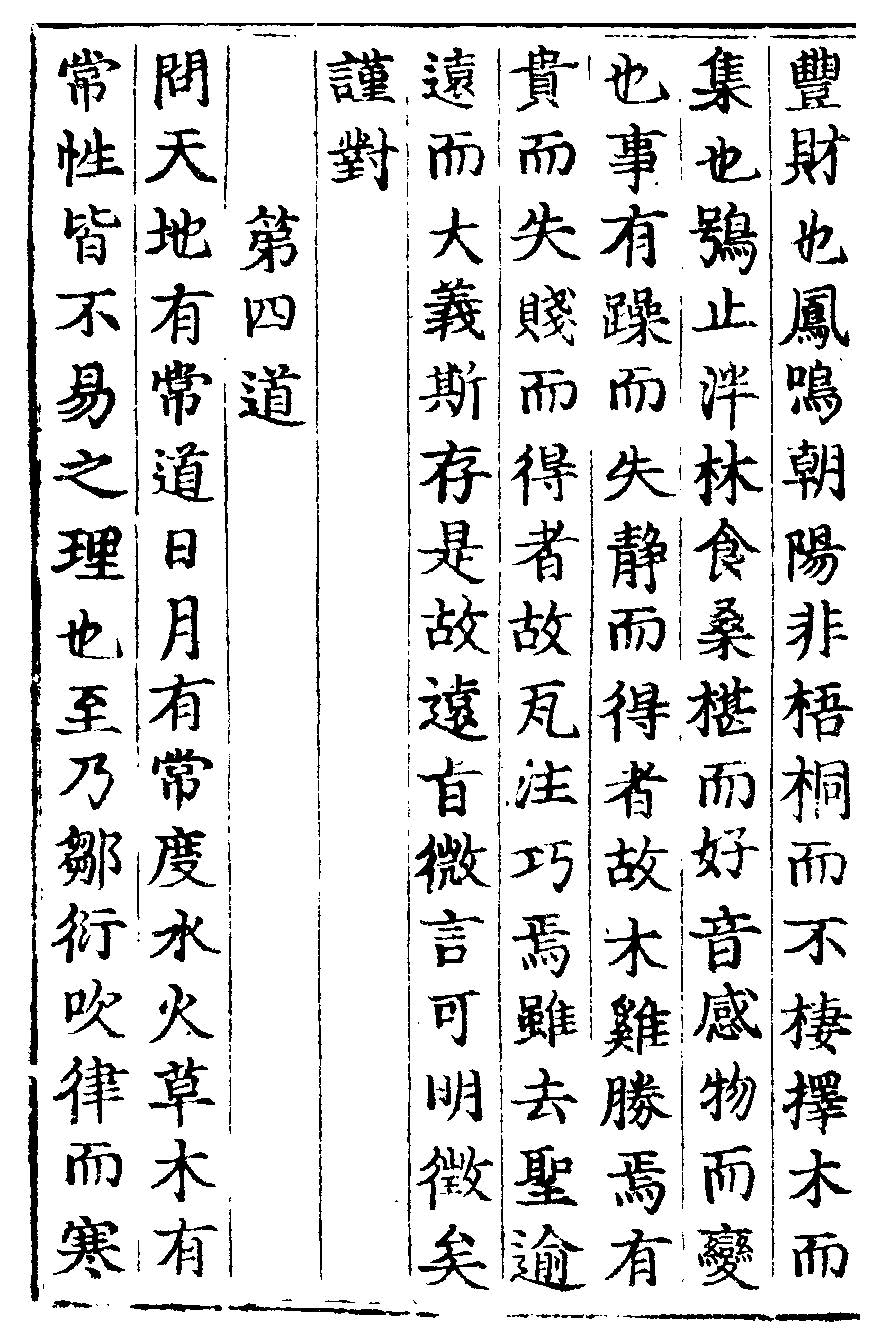 豐財也鳳鳴朝陽非梧桐而不棲擇木而
集也鴞止泮林食桑椹而好音感物而變
也事有躁而失靜而得者故木雞勝焉有
貴而失賤而得者故瓦注巧焉雖去聖逾
遠而大義斯存是故遠旨微言可明徵矣
謹對
第四道
問天地有常道日月有常度水火草木有
常性皆不易之理也至乃鄒衍吹律而寒